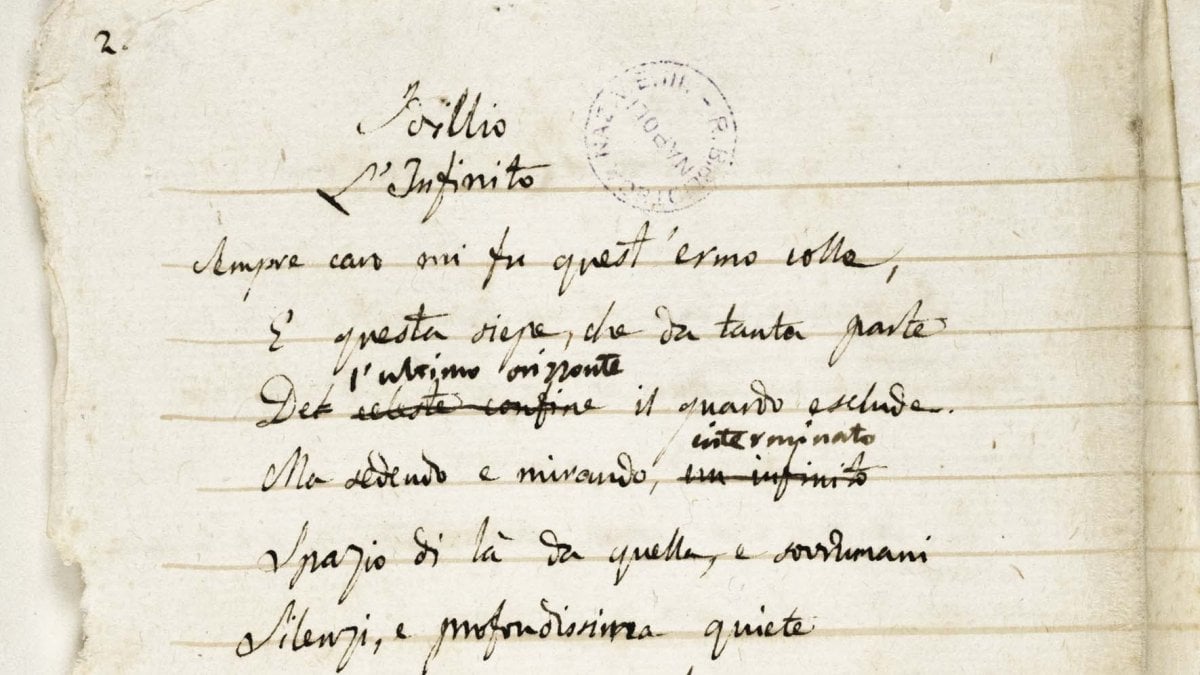 2.
Idillio
L'Infinito
Sempre caro mi fu quest'ermo colle,
E questa siepe, che da tanta parte
l'ultimo orizzonte
Del celeste confine il guardo esclude.
interminato
Ma sedendo e mirando, un infinito
Spazio di là da quella, e sovrumani
Silenzi, e profondissima quiete
NAPOLI